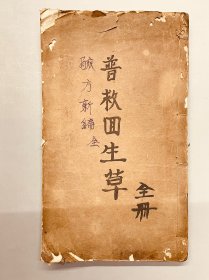 普救回生草
全册
驗方新編全